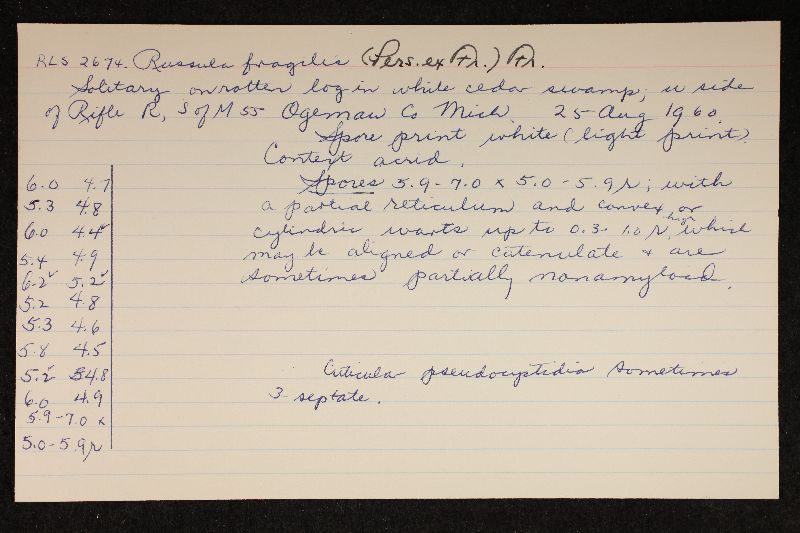 RLS 2674. Russula fragilis (Pers. ex Fr.) Fr.
Solitary on rotten log in white cedar swamp; w side
of Rifle R, S of M 55 Ogemaw Co Mich. 25 Aug 1960.
Spore print white (light print).
Context acrid.
Spores 5.9-7.0 x 5.0-5.9 µ; with
a partial reticulum and convex or
cylindric warts up to 0.3-1.0 µ high, which
may be aligned or catenulate & are
sometimes partially nonamyloid.
Cuticular pseudocystidia sometimes
3-septate.
6.0 4.7
5.3 4.8
6.0 4.4
5.4 4.9
6.2 5.2
5.2 4.8
5.3 4.6
5.8 4.5
5.2 4.8
6.0 4.9
5.9-7.0 x
5.0-5.9µ